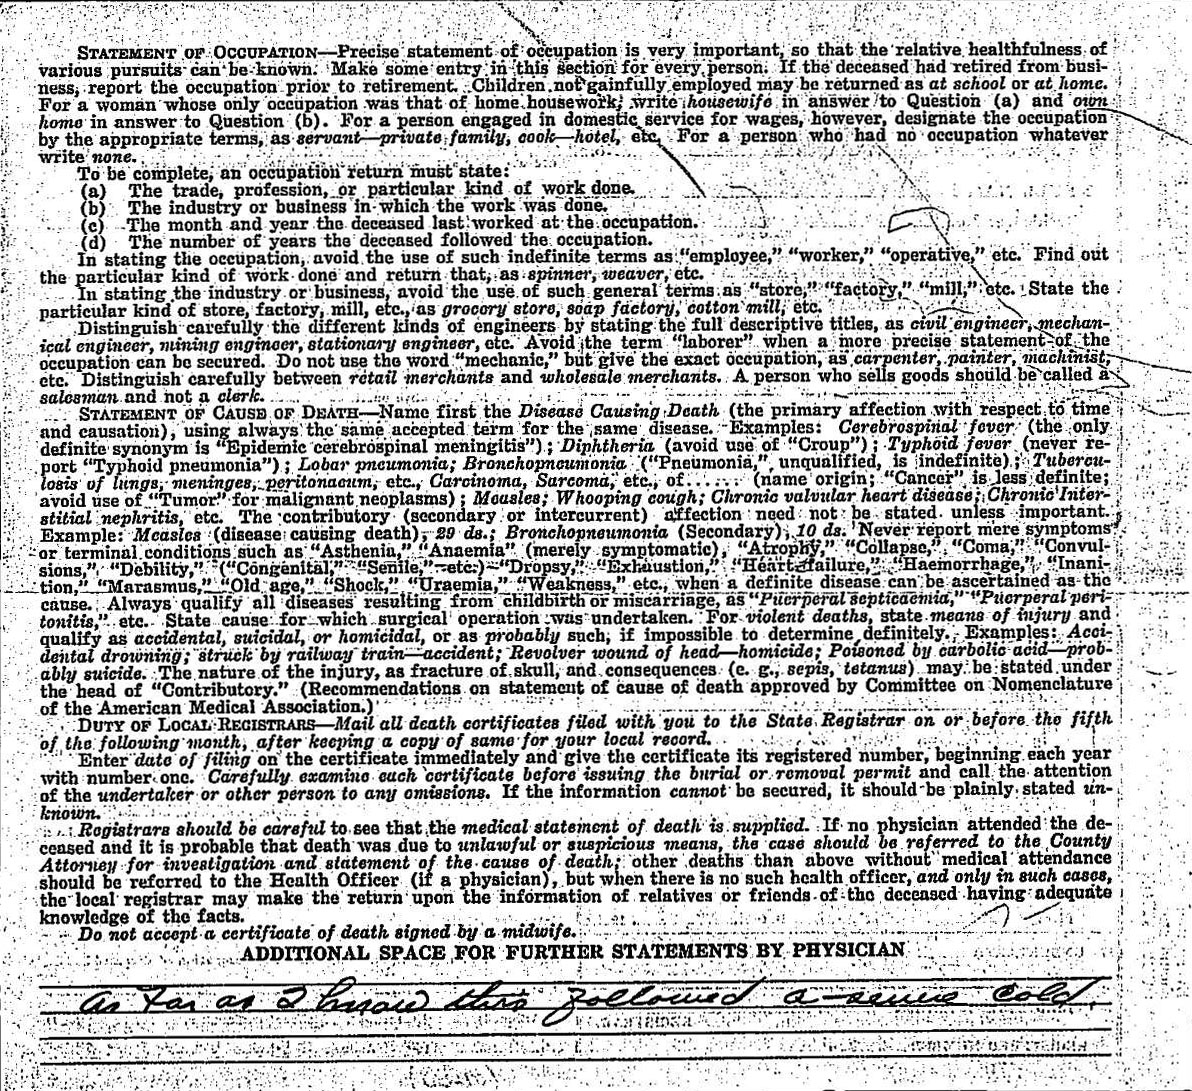 STATEMENT OF OCCUPATION—Precise statement of occupation is very important, so that the relative healthfulness of
various pursuits can be known. Make some entry in this section for every person. If the deceased had retired from busi-
ness, report the occupation prior to retirement. Children not gainfully employed may be returned as at school or at home.
For a woman whose only occupation was that of home housework, write housewife in answer to Question (a) and own
home in answer to Question (b). For a person engaged in domestic service for wages, however, designate the occupation
by the appropriate terms, as servant—private family, cook—hotel, etc. For a person who had no occupation whatever
write none.
To be complete, an occupation return must state:
(a) The trade, profession, or particular kind of work done.
(b) The industry or business in which the work was done.
(c) The month and year the deceased last worked at the occupation.
(d) The number of years the deceased followed the occupation.
In stating the occupation, avoid the use of such indefinite terms as "employee," "worker," "operative," etc. Find out
the particular kind of work done and return that, as spinner, weaver, etc.
In stating the industry or business, avoid the use of such general terms as "store," "factory," "mill," etc. State the
particular kind of store, factory, mill, etc., as grocery store, soap factory, cotton mill, etc.
Distinguish carefully the different kinds of engineers by stating the full descriptive titles, as civil engineer, mechan-
ical engineer, mining engineer, stationary engineer, etc. Avoid the term "laborer" when a more precise statement of the
occupation can be secured. Do not use the word "mechanic," but give the exact occupation, as carpenter, painter, machinist,
etc. Distinguish carefully between retail merchants and wholesale merchants. A person who sells goods should be called a
salesman and not a clerk.
STATEMENT OF CAUSE OF DEATH—Name first the Disease Causing Death (the primary affection with respect to time
and causation), using always the same accepted term for the same disease. Examples: Cerebrospinal fever (the only
definite synonym is "Epidemic cerebrospinal meningitis"); Diphtheria (avoid use of "Croup"); Typhoid fever (never re-
port "Typhoid pneumonia"); Lobar pneumonia; Bronchopneumonia ("Pneumonia," unqualified, is indefinite); Tubercu-
losis of lungs, meninges, peritonaeum, etc., Carcinoma, Sarcoma, etc., of...... (name origin; "Cancer" is less definite;
avoid use of "Tumor" for malignant neoplasms); Measles; Whooping cough; Chronic valvular heart disease; Chronic Inter-
stitial nephritis, etc. The contributory (secondary or intercurrent) affection need not be stated unless important.
Example: Measles (disease causing death), 29 ds.; Bronchopneumonia (Secondary), 10 ds. Never report mere symptoms
or terminal conditions such as "Asthenia," "Anaemia" (merely symptomatic), "Atrophy," "Collapse," "Coma," "Convul-
sions," "Debility," ("Congenital," "Senile," etc.) "Dropsy," "Exhaustion," "Heart failure," "Haemorrhage," "Inani-
tion," "Marasmus," "Old age," "Shock," "Uraemia," "Weakness," etc., when a definite disease can be ascertained as the
cause. Always qualify all diseases resulting from childbirth or miscarriage, as "Puerperal septicaemia," "Puerperal peri-
tonitis," etc. State cause for which surgical operation was undertaken. For violent deaths, state means of injury and
qualify as accidental, suicidal, or homicidal, or as probably such, if impossible to determine definitely. Examples: Acci-
dental drowning; struck by railway train—accident; Revolver wound of head—homicide; Poisoned by carbolic acid—prob-
ably suicide. The nature of the injury, as fracture of skull, and consequences (e. g., sepis, tetanus) may be stated under
the head of "Contributory." (Recommendations on statement of cause of death approved by Committee on Nomenclature
of the American Medical Association.)
DUTY OF LOCAL REGISTRARS—Mail all death certificates filed with you to the State Registrar on or before the fifth
of the following month, after keeping a copy of same for your local record.
Enter date of filing on the certificate immediately and give the certificate its registered number, beginning each year
with number one. Carefully examine each certificate before issuing the burial or removal permit and call the attention
of the undertaker or other person to any omissions. If the information cannot be secured, it should be plainly stated un-
known.
Registrars should be careful to see that the medical statement of death is supplied. If no physician attended the de-
ceased and it is probable that death was due to unlawful or suspicious means, the case should be referred to the County
Attorney for investigation and statement of the cause of death; other deaths than above without medical attendance
should be referred to the Health Officer (if a physician), but when there is no such health officer, and only in such cases,
the local registrar may make the return upon the information of relatives or friends of the deceased having adequate
knowledge of the facts.
Do not accept a certificate of death signed by a midwife.
ADDITIONAL SPACE FOR FURTHER STATEMENTS BY PHYSICIAN
As Far as I know this followed a severe cold.